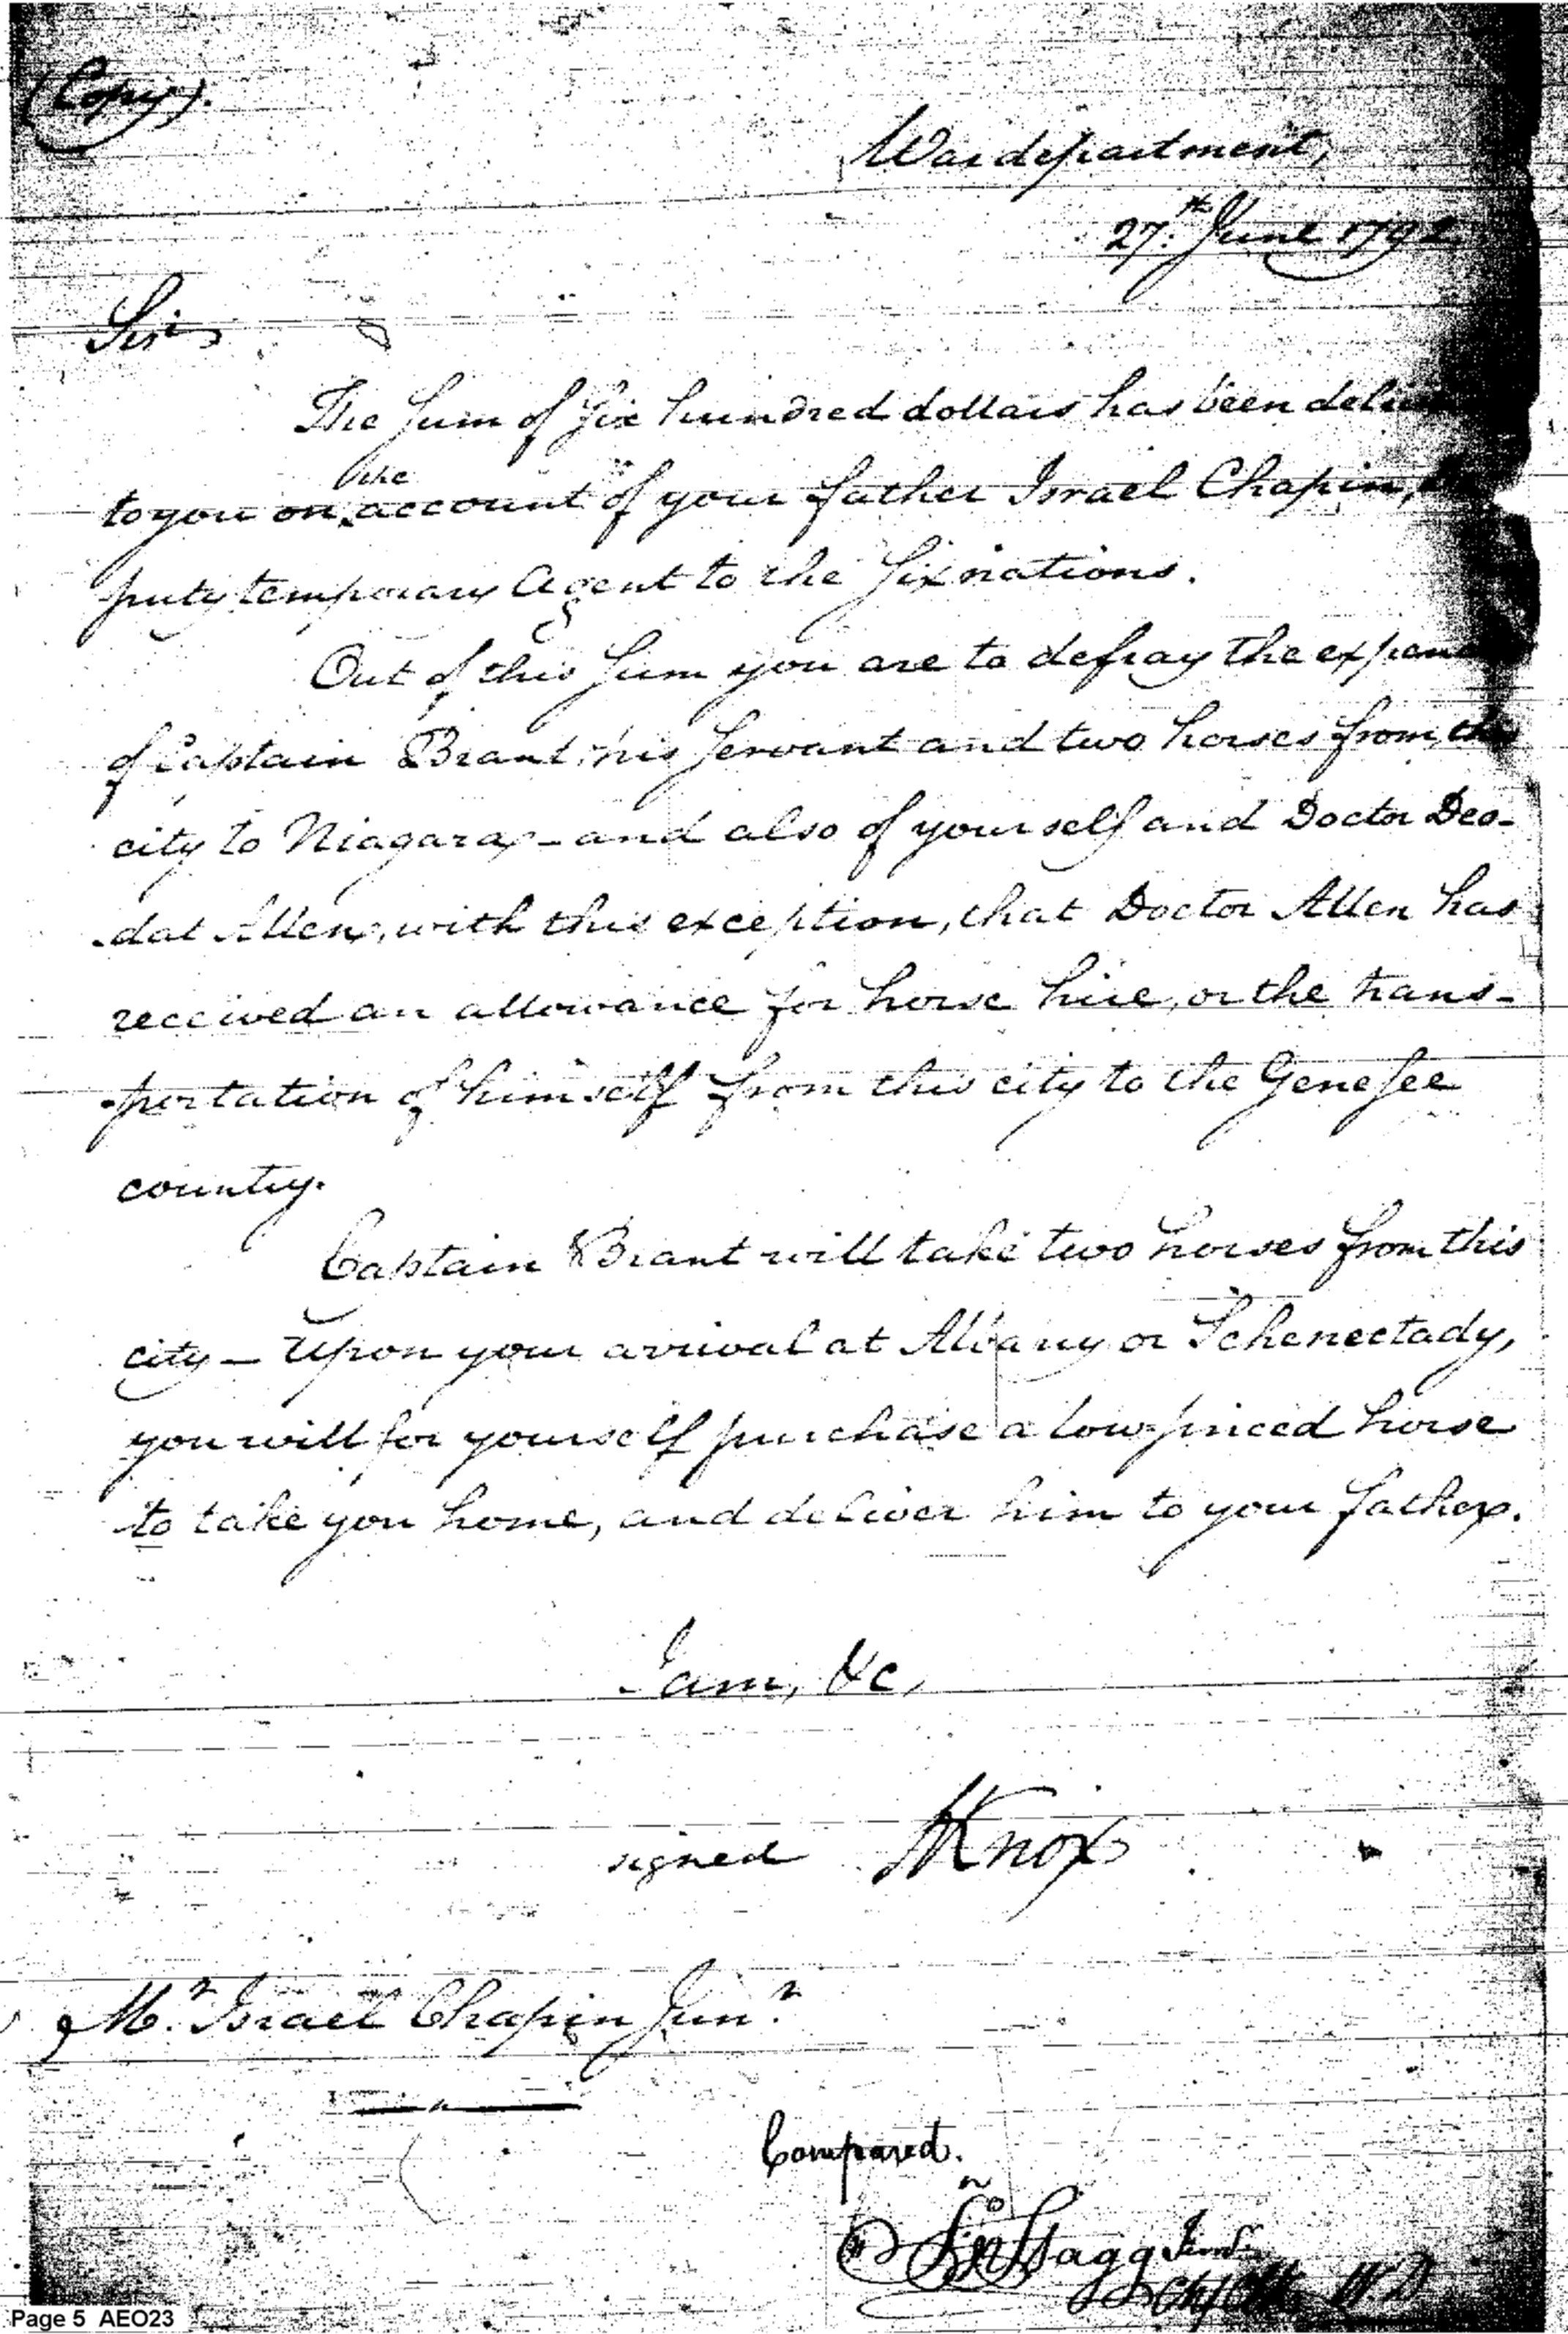 (Copy).
War department,
27th June 1792
Sir
The Sum of Six hundred dollars has been deliv
the
to you on account of your father Israel Chapin,
puty temporary Agent to the Six nations.
Out of this Sum you are to defray the expen
of Captain Brant, his Servant and two horses from this
city to Niagara - and also of yourself and Doctor Deo-
-dat Allen, with this exception, that Doctor Allen has
received an allowance for horse hire, or the trans-
-portation of himself from this city to the Genesee
country.
Captain Brant will take two horses from this
city — Upon your arrival at Albany or Schenectady,
you will for yourself purchase a low-priced horse
to take you home, and deliver him to your father.
I am, &c,
signed HKnox
Mr. Israel Chapin Junr.
Compared.
Jno Stagg Junr.
Chf Clk W D
Page 5 AEO23